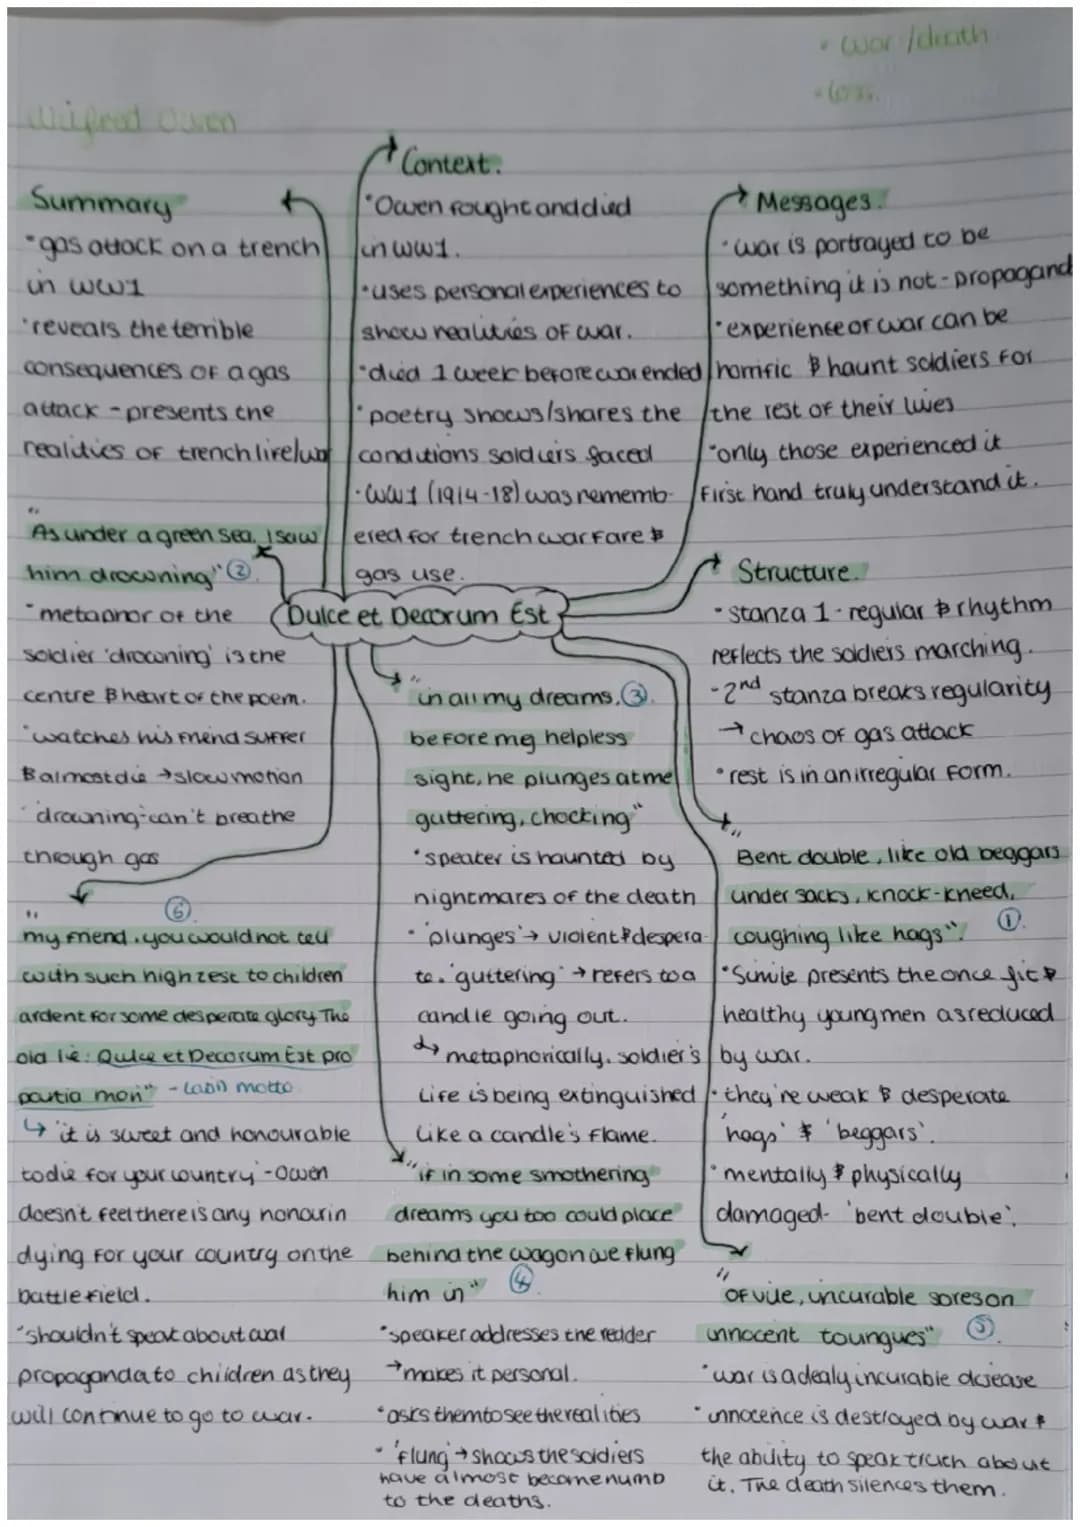 • war/death
• loss
Wilfred Owen
Summary
• gas attack on a trench
in WW1
• reveals the terrible
consequences of a gas
attack - presents the
realities of trench life/war
Context.
• Owen fought and died
in WW1.
• uses personal experiences to
show realities of war.
• died 1 week before war ended
• poetry shows/shares the
conditions soldiers faced
• WW1 (1914-18) was rememb-
ered for trench warfare &
gas use.
Messages.
• war is portrayed to be
something it is not - propagand
• experience of war can be
horrific & haunt soldiers for
the rest of their lives
• only those experienced it
first hand truly understand it.
"
As under a green sea, I saw
him drowning" ②.
• metaphor of the
soldier 'drowning' is the
centre & heart of the poem.
• watches his friend suffer
& almost die → slow motion
• drowning - can't breathe
through gas
Dulce et Decorum Est
Structure.
• stanza 1 - regular & rhythm
reflects the soldiers marching.
- 2nd stanza breaks regularity
→ chaos of gas attack
• rest is in an irregular form.
"
in all my dreams, ③.
before me helpless
sight, he plunges at me
guttering, chocking"
• speaker is haunted by
nightmares of the death
• 'plunges' → violent & despera-
te. 'guttering' → refers to a
candle going out.
↳ metaphorically, soldier's
life is being extinguished
like a candle's flame.
"
Bent double, like old beggars
under sacks, knock-kneed,
coughing like hags". ①.
• Simile presents the once fit &
healthy young men as reduced
by war.
• they're weak & desperate
'hags' & 'beggars'.
• mentally & physically
damaged - 'bent double'.
" ⑥.
my friend, you would not tell
with such high zest to children
ardent for some desperate glory The
old lie: Dulce et Decorum Est pro
patria mori" - Latin motto
↳ 'it is sweet and honourable
to die for your country' - Owen
doesn't feel there is any honour in
dying for your country on the
battlefield.
• shouldn't speak about war
propaganda to children as they
will continue to go to war.
" if in some smothering
dreams you too could place
behind the wagon we flung
him in" ④.
• speaker addresses the redder
→ makes it personal.
• asks them to see the realities
• 'flung' → shows the soldiers
have almost become numb
to the deaths.
"
of vile, incurable sores on
innocent toungues" ⑤.
• war is a dealy incurable disease
• innocence is destroyed by war &
the ability to speak truth about
it. The death silences them.